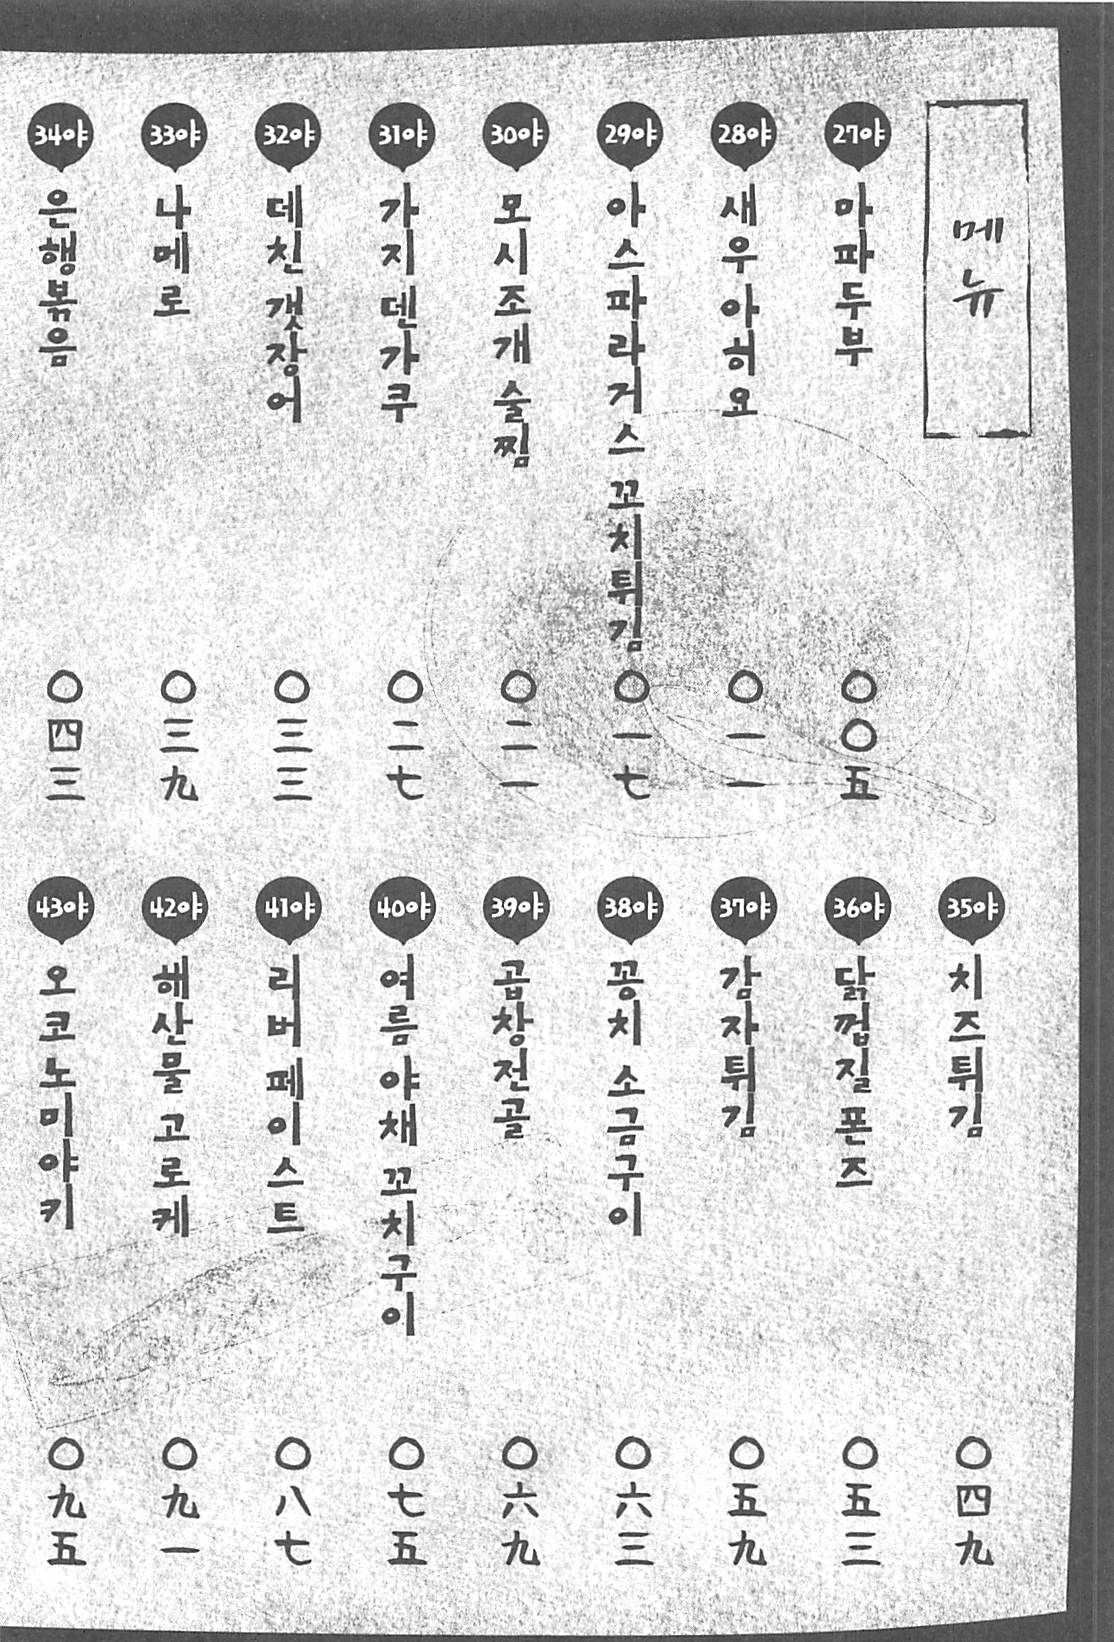 메뉴
27야 마파두부 〇〇五
28야 새우 아히요 〇一一
29야 아스파라거스 꼬치튀김 〇一七
30야 모시조개 술찜 〇二一
31야 가지 덴가쿠 〇二七
32야 데친 갯장어 〇三三
33야 나메로 〇三九
34야 은행볶음 〇四三
35야 치즈튀김 〇四九
36야 닭껍질 폰즈 〇五三
37야 감자튀김 〇五九
38야 꽁치 소금구이 〇六三
39야 곱창전골 〇六九
40야 여름 야채 꼬치구이 〇七五
41야 리버 페이스트 〇八七
42야 해산물 고로케 〇九一
43야 오코노미야키 〇九五